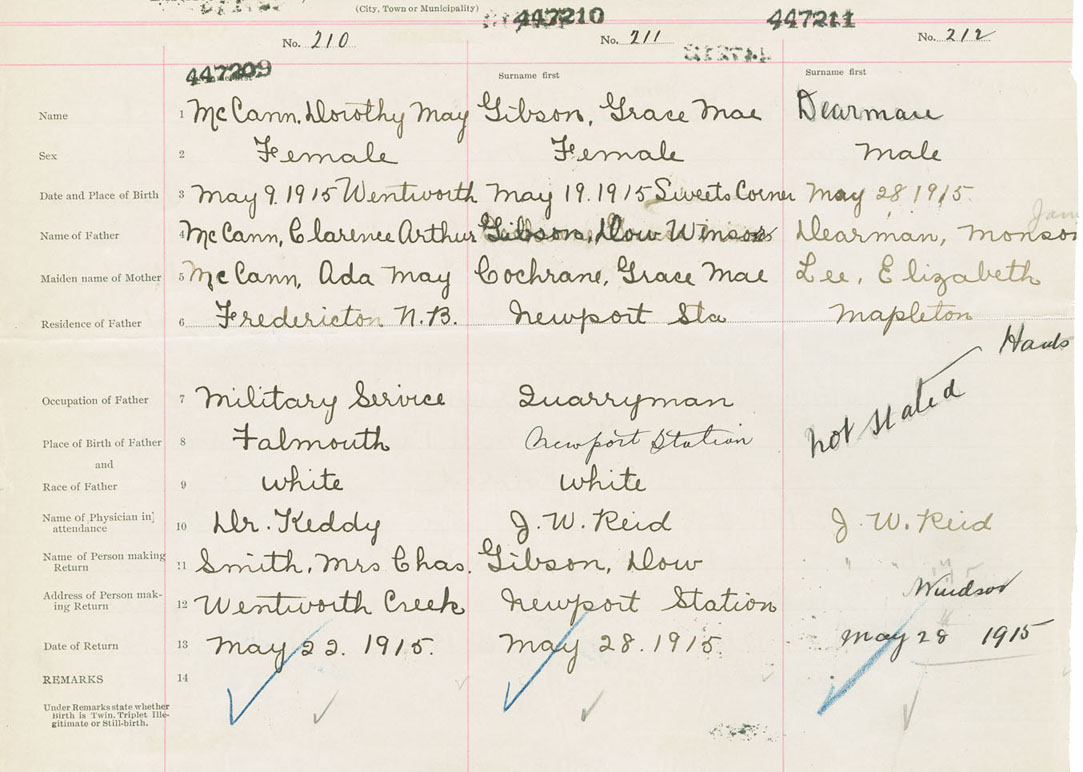 (City, Town or Municipality)
447210 447211
No. 210 No. 211 No. 212
447209
Surname first Surname first
Name 1 McCann, Dorothy May Gibson, Grace Mae Dearman
Sex 2 Female Female Male
Date and Place of Birth 3 May 9. 1915 Wentworth May 19. 1915 Sweets Corner May 28 1915.
Name of Father 4 McCann, Clarence Arthur Gibson, Dow Winsor Dearman, Monson
Maiden name of Mother 5 McCann, Ada May Cochrane, Grace Mae Lee, Elizabeth
Residence of Father 6 Fredericton N.B. Newport Sta Mapleton
Hants
Occupation of Father 7 Military Service Quarryman not stated
Place of Birth of Father 8 Falmouth Newport Station
and
Race of Father 9 White White
Name of Physician in] 10 Dr. Keddy J. W. Reid J. W. Reid
attendance
Name of Person making 11 Smith, Mrs Chas. Gibson, Dow " "
Return
Address of Person mak- 12 Wentworth Creek Newport Station Windsor
ing Return
Date of Return 13 May 22. 1915. May 28. 1915. May 28 1915
REMARKS 14
Under Remarks state whether
Birth is Twin, Triplet Ille-
gitimate or Still-birth.